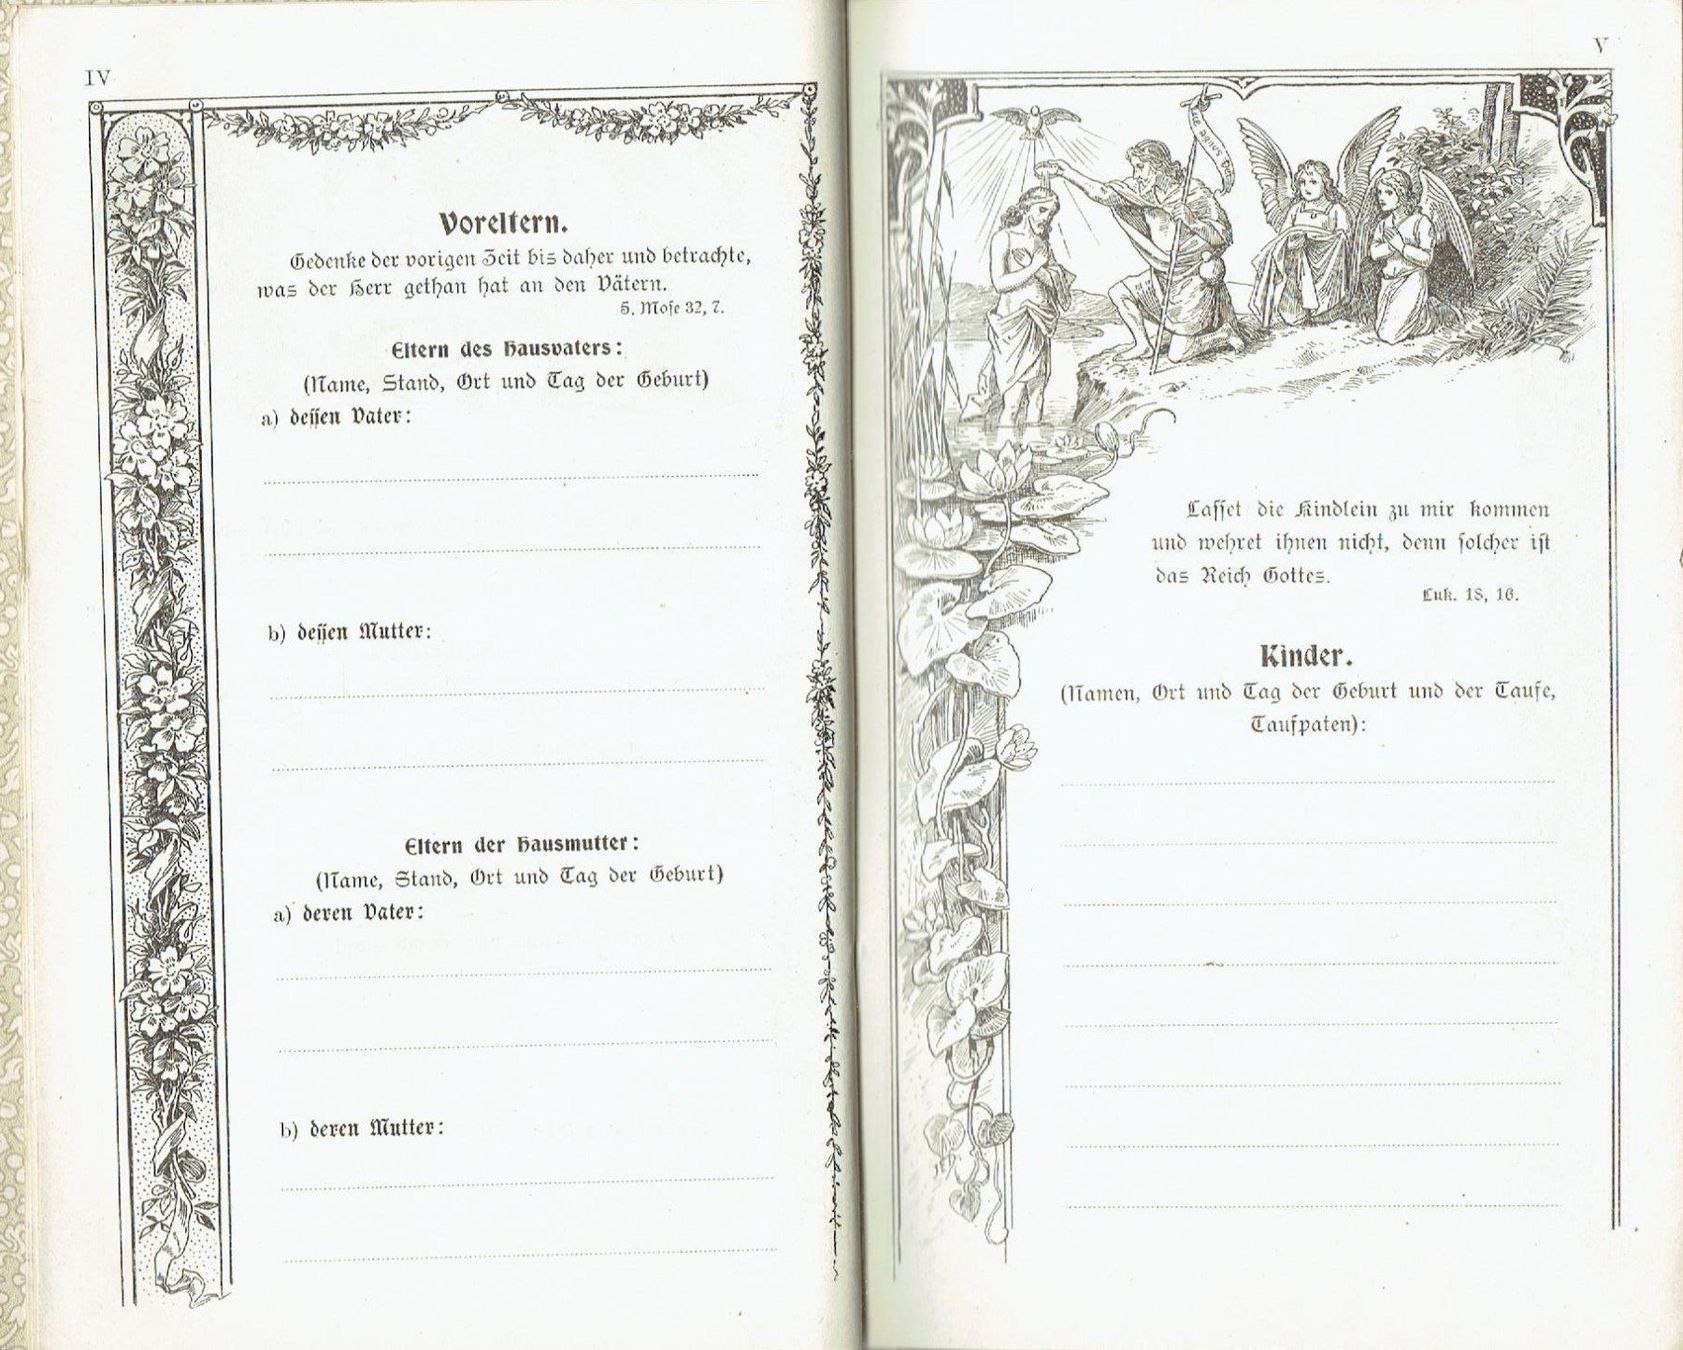 IV
Voreltern.
Gedenke der vorigen Zeit bis daher und betrachte,
was der Herr gethan hat an den Vätern.
5. Mose 32, 7.
Eltern des Hausvaters:
(Name, Stand, Ort und Tag der Geburt)
a) dessen Vater:
b) dessen Mutter:
Eltern der Hausmutter:
(Name, Stand, Ort und Tag der Geburt)
a) deren Vater:
b) deren Mutter:
V
Lasset die Kindlein zu mir kommen
und wehret ihnen nicht, denn solcher ist
das Reich Gottes.
Luk. 18, 16.
Kinder.
(Namen, Ort und Tag der Geburt und der Taufe,
Taufpaten):